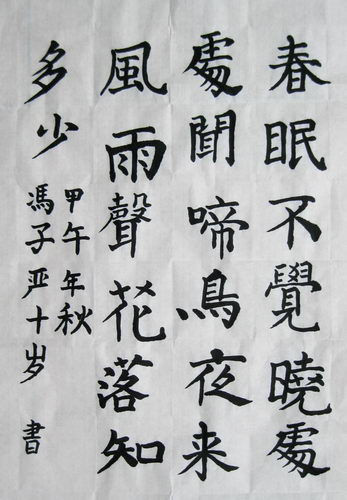 春眠不覺曉處
處聞啼鳥夜来
風雨聲花落知
多少
甲午年秋
馮子严十岁書